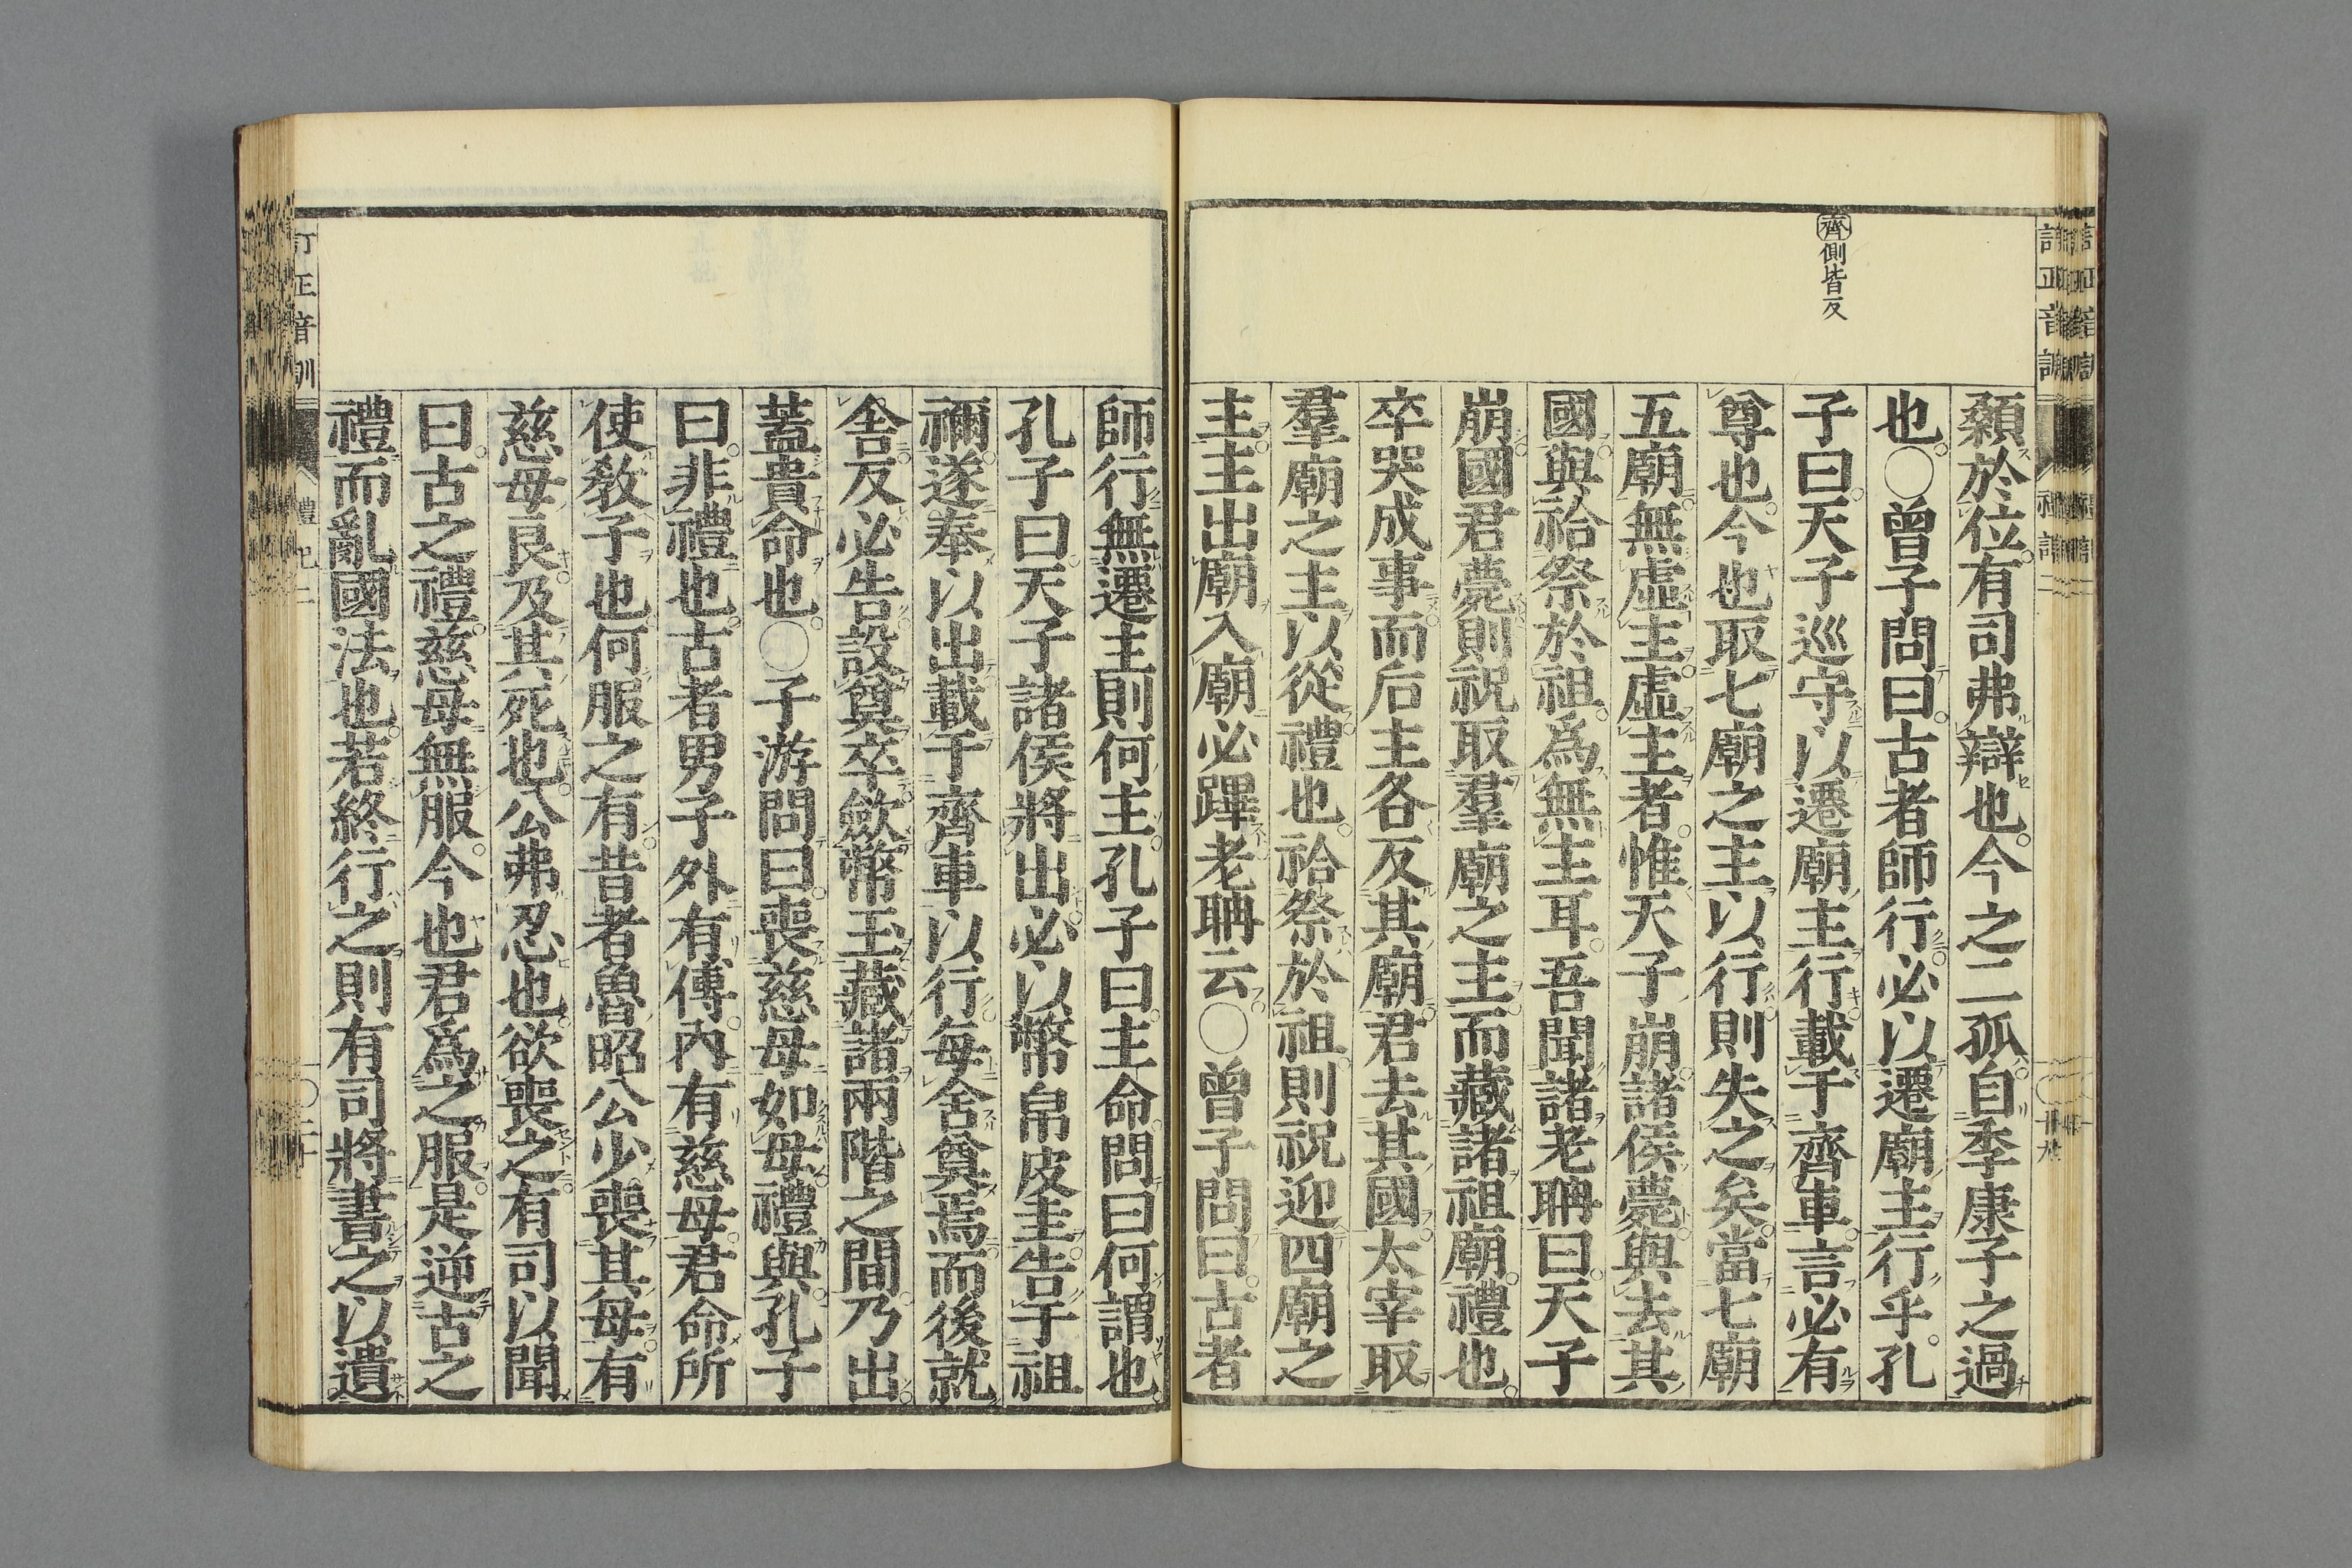 齊側皆反
顙於位有司弗辯也今之二孤自季康子之過
也○曾子問曰古者師行必以遷廟主行乎孔
子曰天子巡守以遷廟主行載于齊車言必有
尊也今也取七廟之主以行則失之矣當七廟
五廟無虛主虛主者惟天子崩諸侯薨與去其
國與祫祭於祖爲無主耳吾聞諸老聃曰天子
崩國君薨則祝取羣廟之主而藏諸祖廟禮也
卒哭成事而后主各反其廟君去其國太宰取
羣廟之主以從禮也祫祭於祖則祝迎四廟之
主主出廟入廟必蹕老聃云○曾子問曰古者
師行無遷主則何主孔子曰主命問曰何謂也
孔子曰天子諸侯將出必以幣帛皮圭告于祖
禰遂奉以出載于齊車以行每舍奠焉而後就
舍反必告設奠卒斂幣玉藏諸兩階之間乃出
蓋貴命也○子游問曰喪慈母如母禮與孔子
曰非禮也古者男子外有傅內有慈母君命所
使敎子也何服之有昔者魯昭公少喪其母有
慈母良及其死也公弗忍也欲喪之有司以聞
曰古之禮慈母無服今也君爲之服是逆古之
禮而亂國法也若終行之則有司將書之以遺
訂正音訓
禮記二